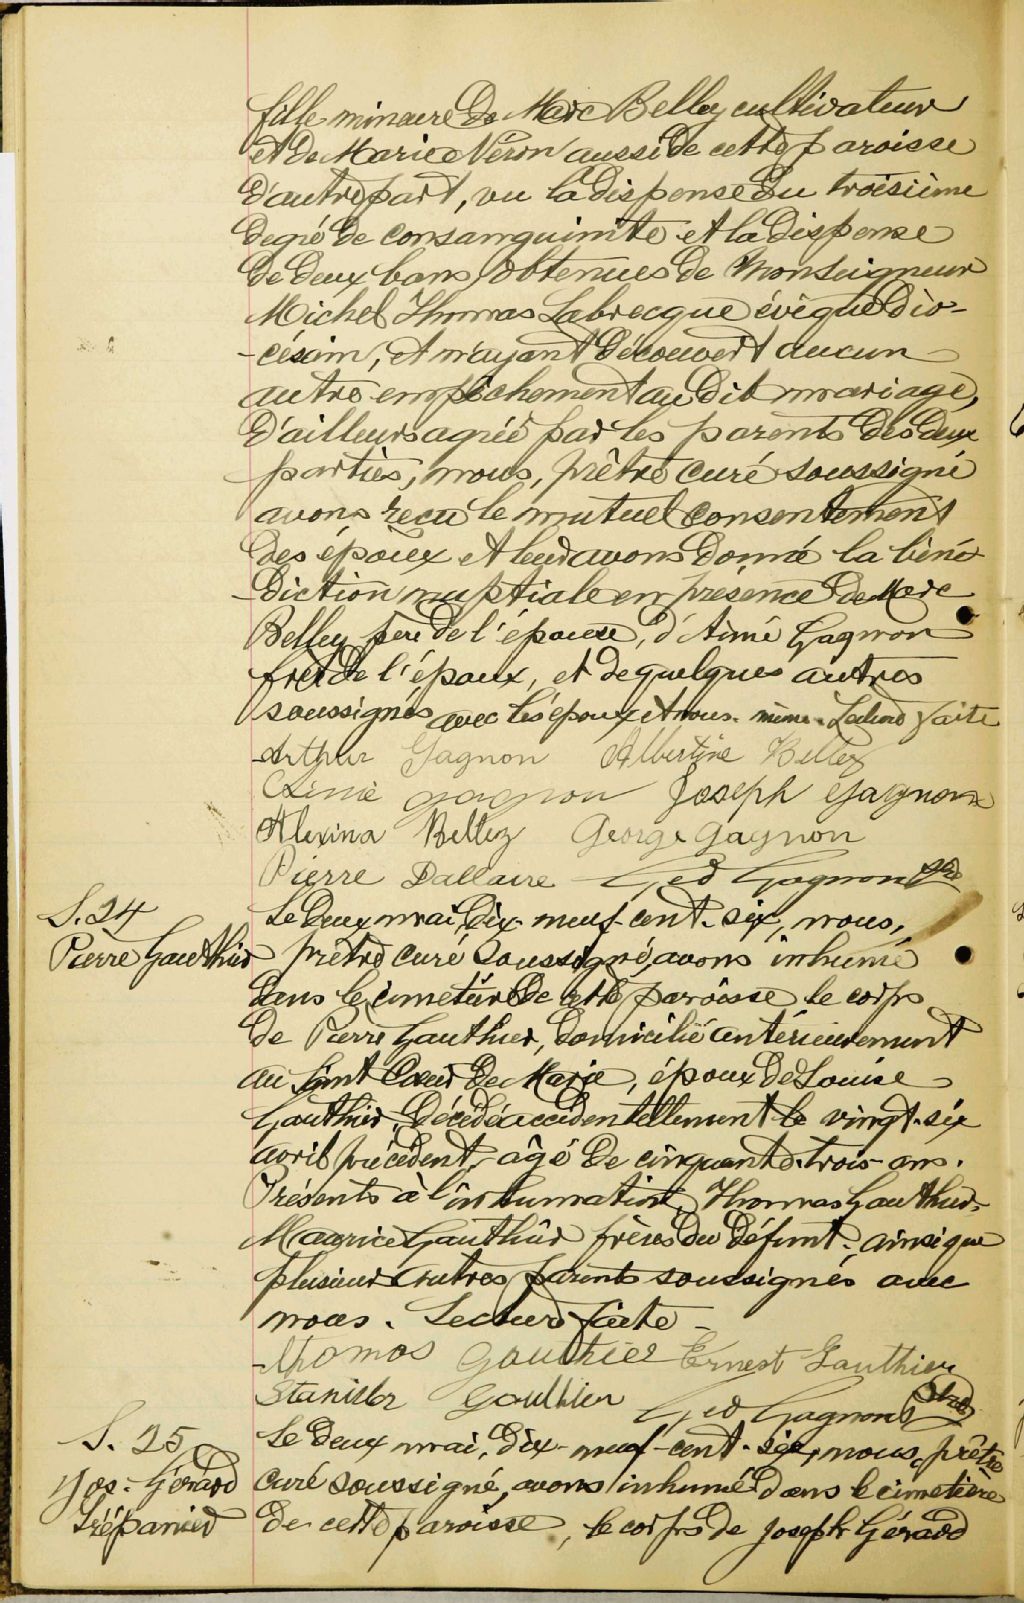 fille mineure de Marc Belley cultivateur
et de Marie Néron aussi de cette paroisse
d'autre part, vu la dispense du troisième
degré de consanguinité et la dispense
de deux bans obtenues de Monseigneur
Michel Thomas Labrecque évêque dio-
-césain, et n'ayant découvert aucun
autre empêchement au dit mariage,
d'ailleurs agréé par les parents des deux
parties, nous, prêtre curé soussigné
avons reçu le mutuel consentement
des époux et leur avons donné la béné-
-diction nuptiale en présence de Marc
Belley père de l'épouse, d'Aimé Gagnon
frère de l'époux, et de quelques autres
soussignés avec les époux et nous-même. Lecture faite
Arthur Gagnon Albertine Belley
Aimé Gagnon Joseph Gagnon
Alexina Belley George Gagnon
Pierre Dallaire Ged Gagnon ptre
S. 24
Pierre Gauthier
Le deux mai, dix-neuf-cent-six, nous,
prêtre curé soussigné, avons inhumé
dans le cimetière de cette paroisse le corps
de Pierre Gauthier, domicilié antérieurement
au Saint Coeur de Marie, époux de Louise
Gauthier, décédé accidentellement le vingt-six
avril précédent, âgé de cinquante-trois ans.
Présents à l'inhumation, Thomas Gauthier,
Maurice Gauthier frères du défunt, ainsi que
plusieurs autres parents soussignés avec
nous. Lecture faite -
Thomas Gauthier Ernest Gauthier
Stanislas Gauthier Ged Gagnon ptre
S. 25
Jos-Gérard
Trépanier
Le deux mai, dix-neuf-cent-six, nous, prêtre
curé soussigné, avons inhumé dans le cimetière
de cette paroisse, le corps de Joseph Gérard